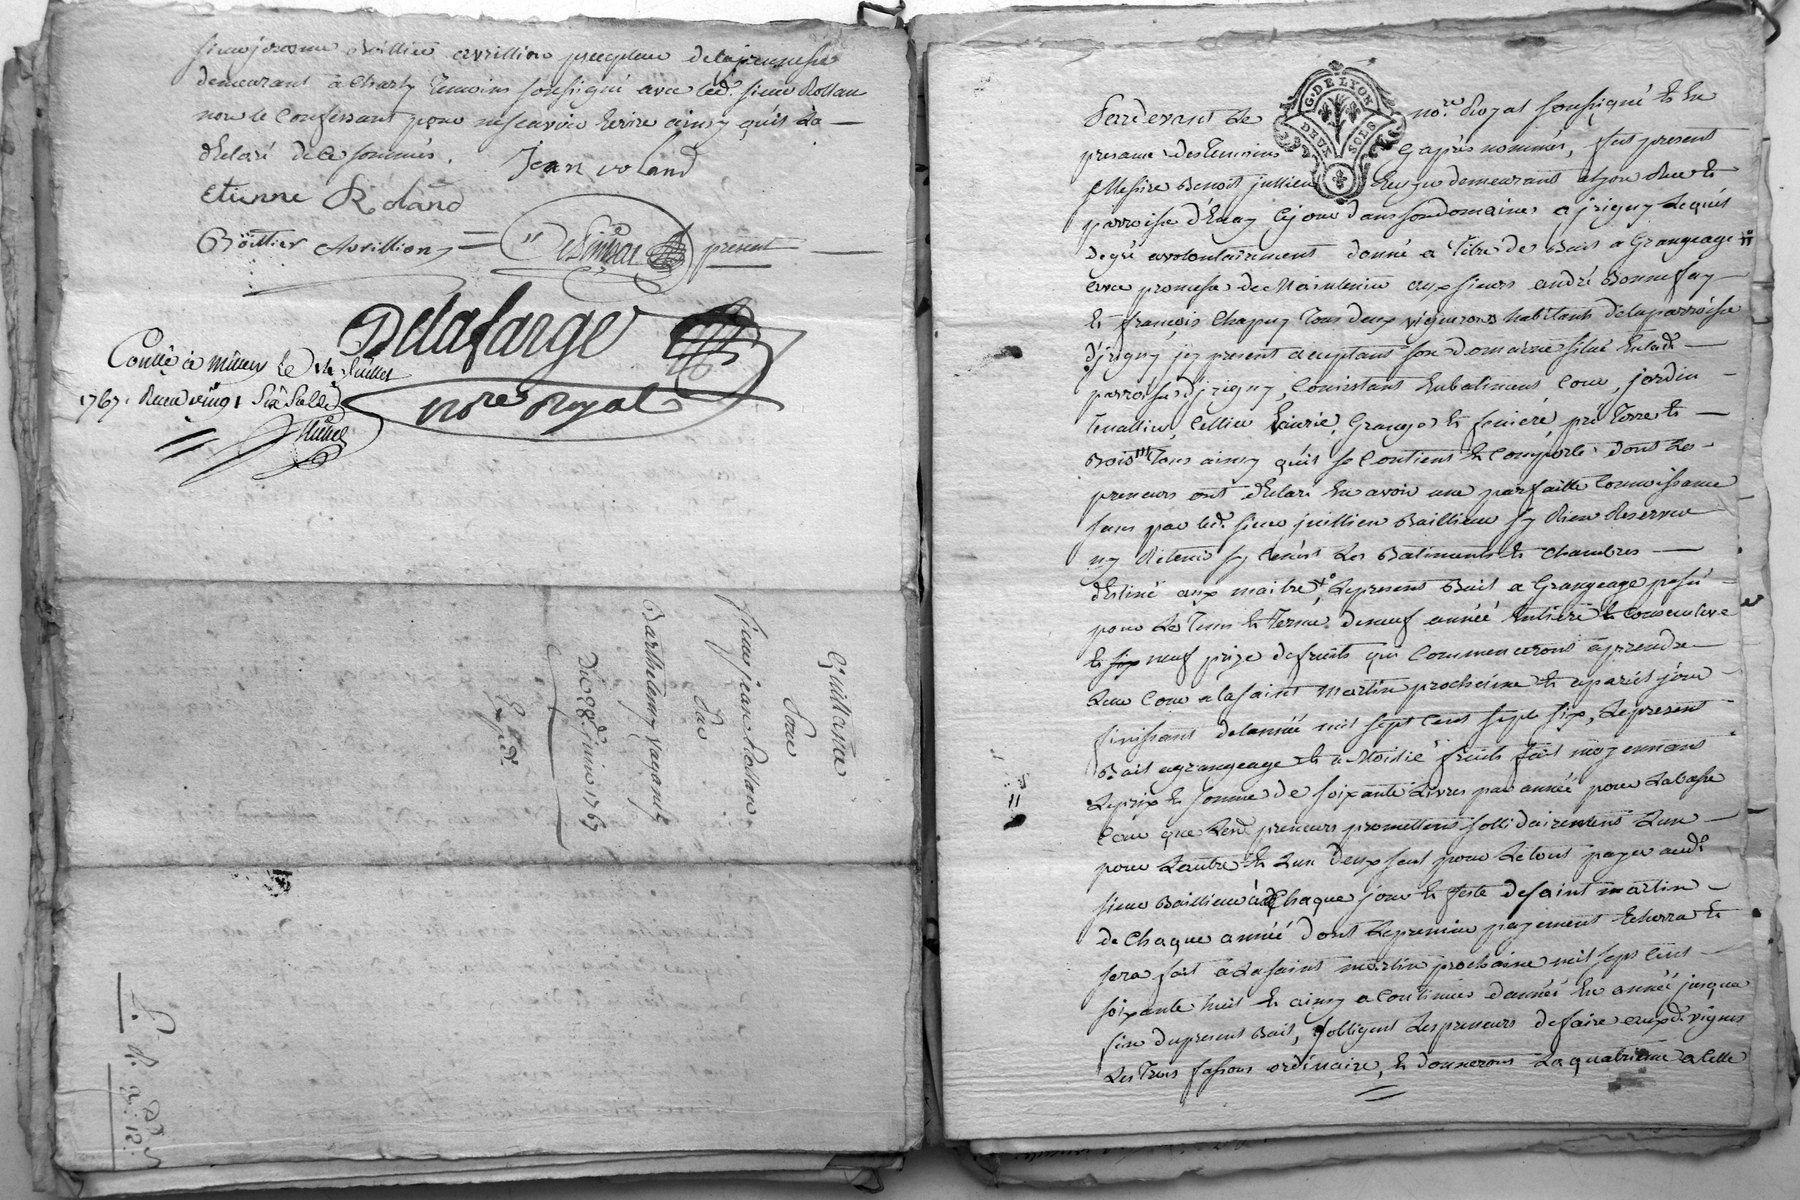 sieur jerome Boittier avrillion precepteur de la jeunesse
demeurant à Charly temoins soussigné avec led. sieur Rollan
non le Confessant pour ne scavoir Ecrire ainsy qu'il La
declaré de ce sommés.
Jean roland
etienne Roland
Boittier Avrillion
present
Delafarge
no.re Royal
Conllé à Millery Le 14 Juillet
1767. Recu vingt Six Sols
Quittance
Pour
sieur jean Rollan
Par
Barthelemy
Du 28.e juin 1767
Exped.
G. DE LYON
DEUX SOLS
Pardevant Le no.re Royal soussigné Et En
presance des temoins cy après nommés, fut present
Messire Benoit jullien demeurant a Lyon Rue et
parroisse d'Enay Ce jour dans son domaine a jrigny Lequel
degré a volontairement donné a titre de Bail a Grangeage
avec promesse de Maintenir aux sieurs andré Bonnefay
Et françois Chapuy tous deux vignerons habitants de la parroisse
d'jrigny jcy present acceptans son domaine situé En lad.
parroisse d'jrigny, Consistant En batiment Cour, jardin
tenallier, Cellier Ecurie, Grange et feniere, pré terre et
Bois tous ainsy qu'il se Contient Et Comporte dont Les
preneurs ont declaré En avoir une parfaitte Connoissance
sans par led. sieur jullien Bailleur sy Rien Reserver
ny Retenir sy cenest Les Batiments et Chambres
destiné aux maitre, Le present Bail a Grangeage passé
pour Le tems et terme de neuf année Entiere et Consecutive
et neuf prize de fruits qui Commenceront a prendre
Leur Cour a la saint Martin prochaine et a pareil jour
finissant de lannée mil sept cent sept six, Le present
Bail a grangeage et a Moitié fruits fait moyennant
Le prix et somme de soixante Livres par année pour La basse
Cour que Lesd. preneurs promettent sollidairement Lun
pour Lautre et Lun deux seul pour Le tout payer aud.
sieur Bailleur à Chaque jour et feste de saint martin
de Chaque année dont Le premier payement Echerra et
sera fait a La saint martin prochaine mil sept cent
soixante huit et ainsy a Continuer dannée En année jusqua
fin du present Bail, sobligent Les preneurs de faire auxd. vignes
Les trois fassons ordinaire, et donneront La quatrieme a Celle